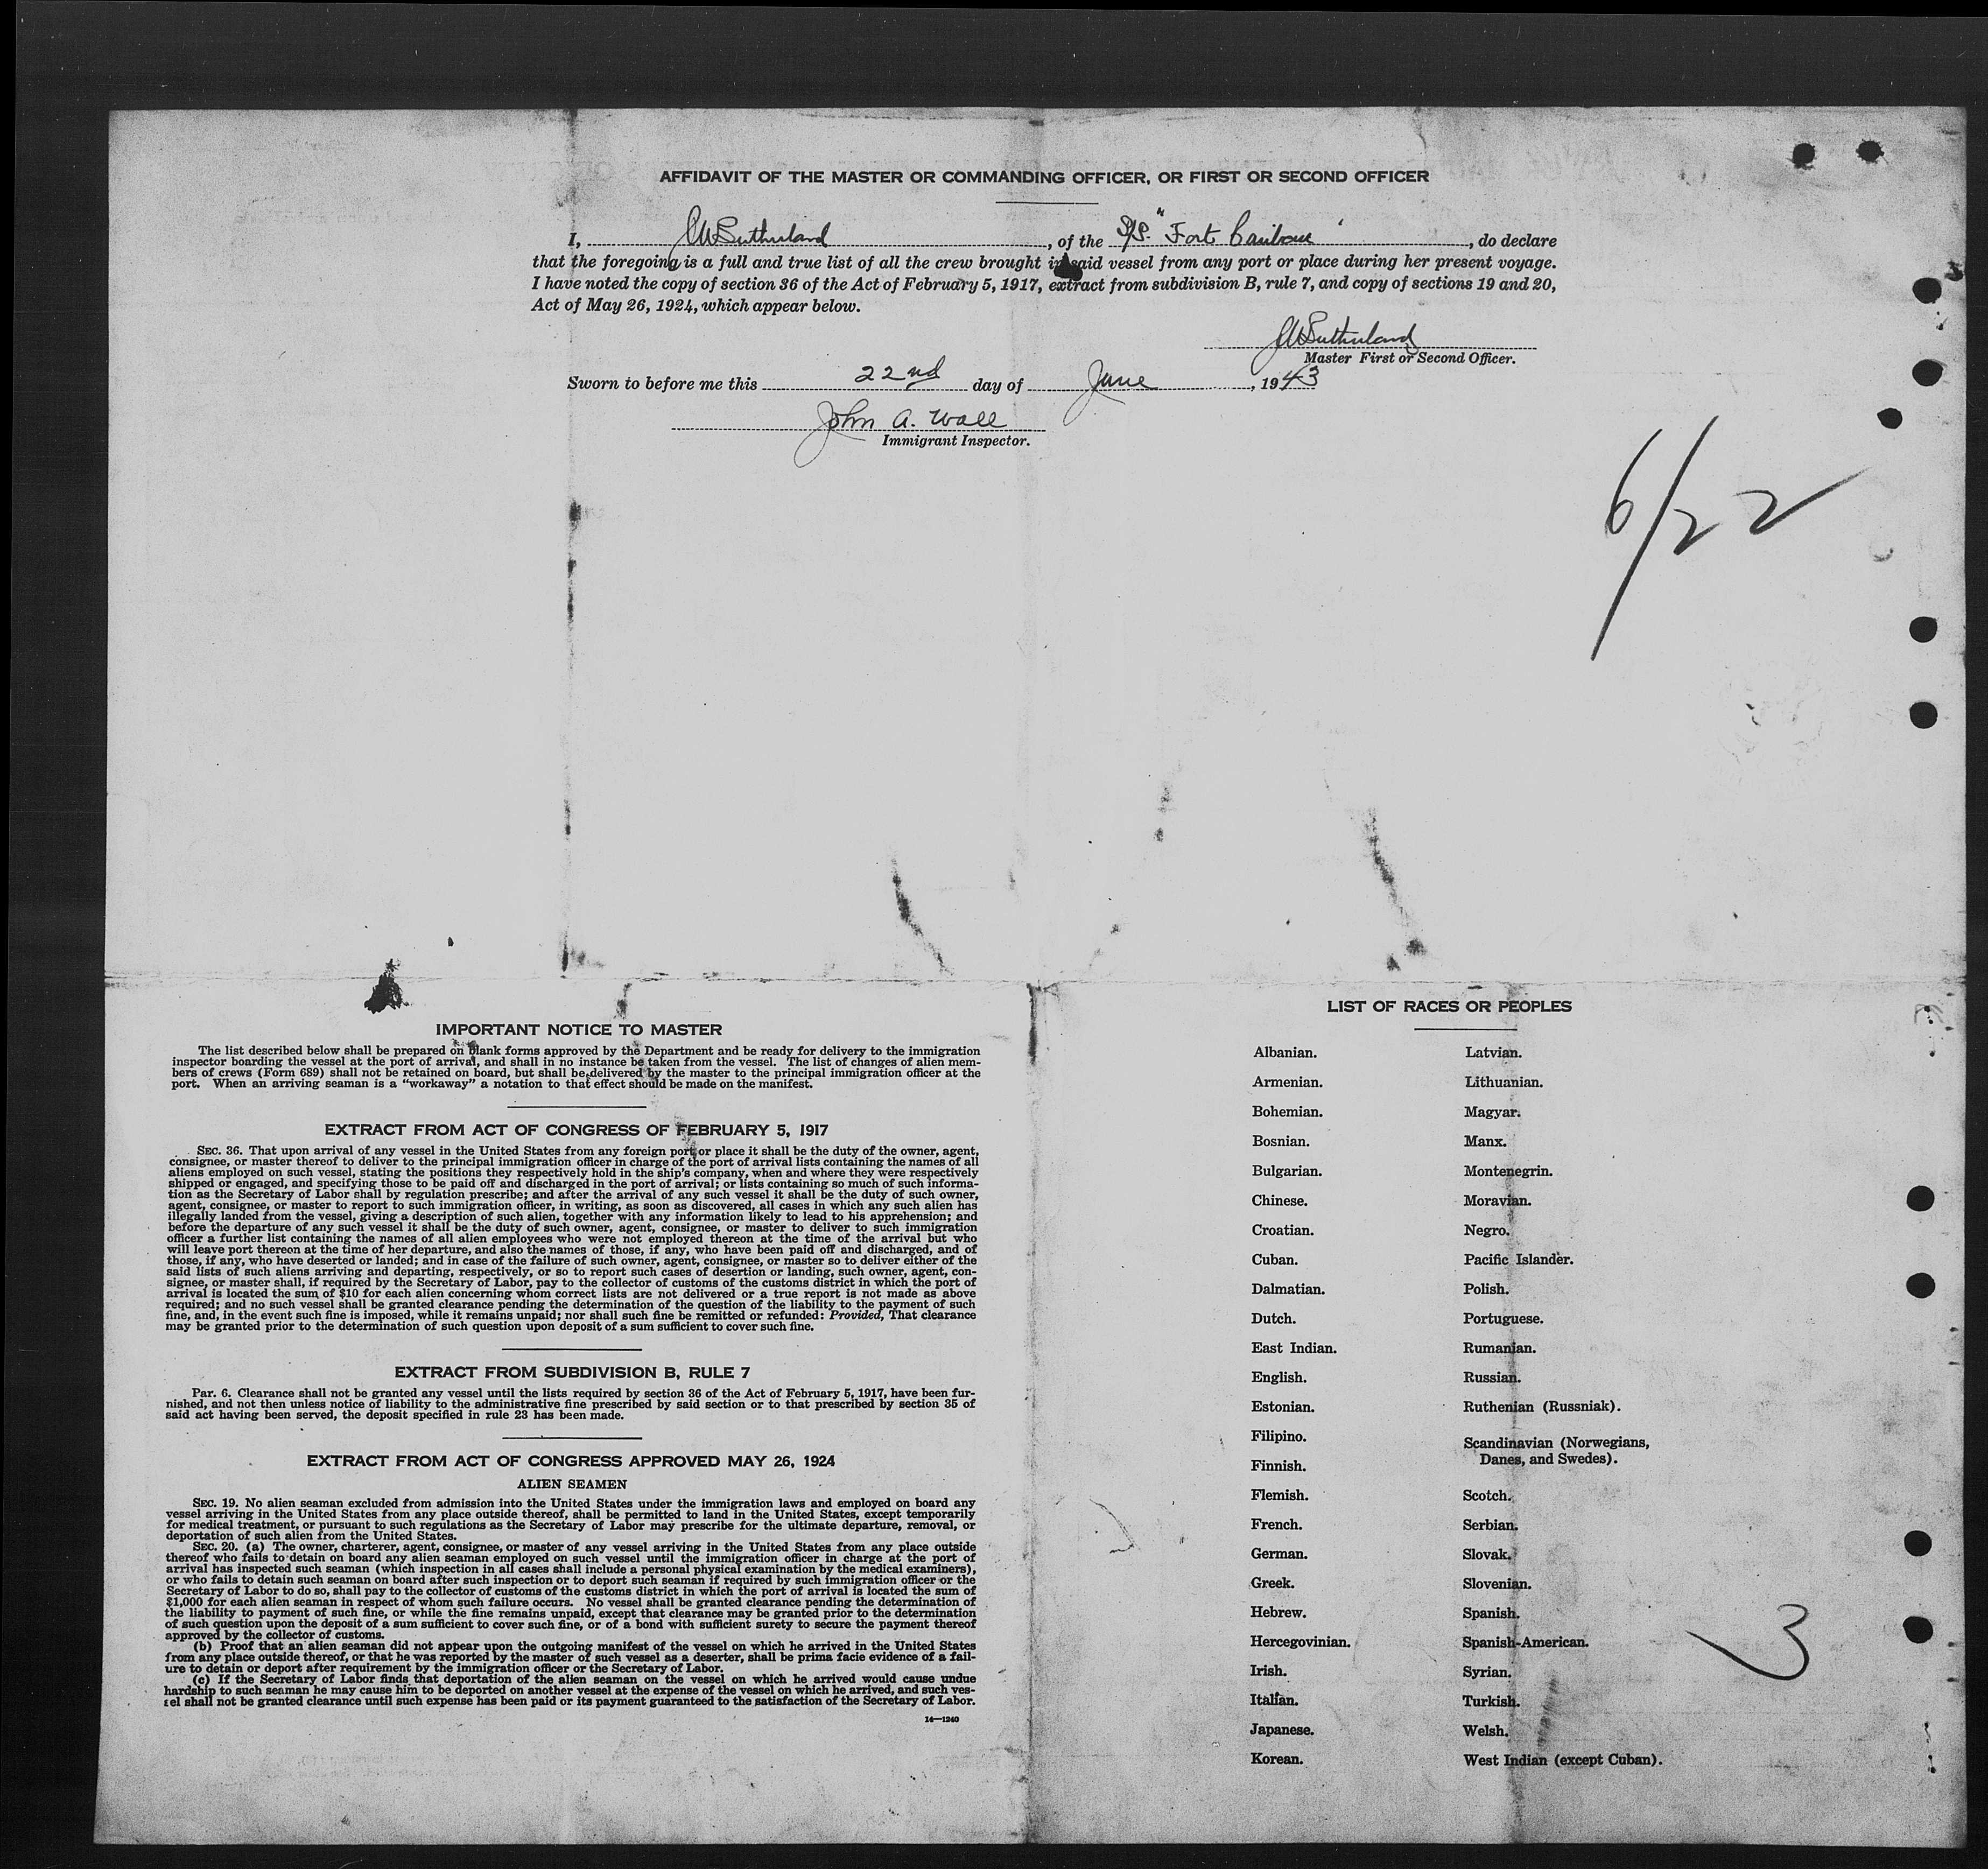 AFFIDAVIT OF THE MASTER OR COMMANDING OFFICER, OR FIRST OR SECOND OFFICER
I, JWSutherland, of the S/S. "Fort Caribou", do declare
that the foregoing is a full and true list of all the crew brought in said vessel from any port or place during her present voyage.
I have noted the copy of section 36 of the Act of February 5, 1917, extract from subdivision B, rule 7, and copy of sections 19 and 20,
Act of May 26, 1924, which appear below.
JWSutherland
Master First or Second Officer.
Sworn to before me this 22nd day of June, 1943
John A. Wall
Immigrant Inspector.
6/22
IMPORTANT NOTICE TO MASTER
The list described below shall be prepared on blank forms approved by the Department and be ready for delivery to the immigration
inspector boarding the vessel at the port of arrival, and shall in no instance be taken from the vessel. The list of changes of alien mem-
bers of crews (Form 689) shall not be retained on board, but shall be delivered by the master to the principal immigration officer at the
port. When an arriving seaman is a "workaway" a notation to that effect should be made on the manifest.
EXTRACT FROM ACT OF CONGRESS OF FEBRUARY 5, 1917
SEC. 36. That upon arrival of any vessel in the United States from any foreign port or place it shall be the duty of the owner, agent,
consignee, or master thereof to deliver to the principal immigration officer in charge of the port of arrival lists containing the names of all
aliens employed on such vessel, stating the positions they respectively hold in the ship's company, when and where they were respectively
shipped or engaged, and specifying those to be paid off and discharged in the port of arrival; or lists containing so much of such informa-
tion as the Secretary of Labor shall by regulation prescribe; and after the arrival of any such vessel it shall be the duty of such owner,
agent, consignee, or master to report to such immigration officer, in writing, as soon as discovered, all cases in which any such alien has
illegally landed from the vessel, giving a description of such alien, together with any information likely to lead to his apprehension; and
before the departure of any such vessel it shall be the duty of such owner, agent, consignee, or master to deliver to such immigration
officer a further list containing the names of all alien employees who were not employed thereon at the time of the arrival but who
will leave port thereon at the time of her departure, and also the names of those, if any, who have been paid off and discharged, and of
those, if any, who have deserted or landed; and in case of the failure of such owner, agent, consignee, or master so to deliver either of the
said lists of such aliens arriving and departing, respectively, or so to report such cases of desertion or landing, such owner, agent, con-
signee, or master shall, if required by the Secretary of Labor, pay to the collector of customs of the customs district in which the port of
arrival is located the sum of $10 for each alien concerning whom correct lists are not delivered or a true report is not made as above
required; and no such vessel shall be granted clearance pending the determination of the question of the liability to the payment of such
fine, and, in the event such fine is imposed, while it remains unpaid; nor shall such fine be remitted or refunded: Provided, That clearance
may be granted prior to the determination of such question upon deposit of a sum sufficient to cover such fine.
EXTRACT FROM SUBDIVISION B, RULE 7
Par. 6. Clearance shall not be granted any vessel until the lists required by section 36 of the Act of February 5, 1917, have been fur-
nished, and not then unless notice of liability to the administrative fine prescribed by said section or to that prescribed by section 35 of
said act having been served, the deposit specified in rule 23 has been made.
EXTRACT FROM ACT OF CONGRESS APPROVED MAY 26, 1924
ALIEN SEAMEN
SEC. 19. No alien seaman excluded from admission into the United States under the immigration laws and employed on board any
vessel arriving in the United States from any place outside thereof, shall be permitted to land in the United States, except temporarily
for medical treatment, or pursuant to such regulations as the Secretary of Labor may prescribe for the ultimate departure, removal, or
deportation of such alien from the United States.
SEC. 20. (a) The owner, charterer, agent, consignee, or master of any vessel arriving in the United States from any place outside
thereof who fails to detain on board any alien seaman employed on such vessel until the immigration officer in charge at the port of
arrival has inspected such seaman (which inspection in all cases shall include a personal physical examination by the medical examiners),
or who fails to detain such seaman on board after such inspection or to deport such seaman if required by such immigration officer or the
Secretary of Labor to do so, shall pay to the collector of customs of the customs district in which the port of arrival is located the sum of
$1,000 for each alien seaman in respect of whom such failure occurs. No vessel shall be granted clearance pending the determination of
the liability to payment of such fine, or while the fine remains unpaid, except that clearance may be granted prior to the determination
of such question upon the deposit of a sum sufficient to cover such fine, or of a bond with sufficient surety to secure the payment thereof
approved by the collector of customs.
(b) Proof that an alien seaman did not appear upon the outgoing manifest of the vessel on which he arrived in the United States
from any place outside thereof, or that he was reported by the master of such vessel as a deserter, shall be prima facie evidence of a fail-
ure to detain or deport after requirement by the immigration officer or the Secretary of Labor.
(c) If the Secretary of Labor finds that deportation of the alien seaman on the vessel on which he arrived would cause undue
hardship to such seaman he may cause him to be deported on another vessel at the expense of the vessel on which he arrived, and such ves-
sel shall not be granted clearance until such expense has been paid or its payment guaranteed to the satisfaction of the Secretary of Labor.
14—1240
LIST OF RACES OR PEOPLES
Albanian.
Armenian.
Bohemian.
Bosnian.
Bulgarian.
Chinese.
Croatian.
Cuban.
Dalmatian.
Dutch.
East Indian.
English.
Estonian.
Filipino.
Finnish.
Flemish.
French.
German.
Greek.
Hebrew.
Hercegovinian.
Irish.
Italian.
Japanese.
Korean.
Latvian.
Lithuanian.
Magyar.
Manx.
Montenegrin.
Moravian.
Negro.
Pacific Islander.
Polish.
Portuguese.
Rumanian.
Russian.
Ruthenian (Russniak).
Scandinavian (Norwegians,
Danes, and Swedes).
Scotch.
Serbian.
Slovak.
Slovenian.
Spanish.
Spanish-American.
Syrian.
Turkish.
Welsh.
West Indian (except Cuban).
3